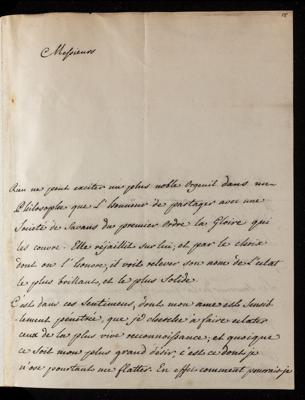 Messieurs
Rien ne peut exciter un plus noble Orgeuil dans un
Philosophe que L'honneur de partager avec une
Societé de Savans du premier Ordre la Gloire qui
les couvre. Elle réjaillit sur lui, et par le choix
dont on l'honore, il voit relever son nom de L'eclat
le plus brillant, et le plus Solide
C'est dans ces Sentimens, dont mon ame est Sensib-
lement pénétrée, que je cherche à faire eclater
ceux de la plus vive reconnoissance, et quoique
ce Soit mon plus grand désir, c'est ce dont je
n'ose pourtant me flatter. En effet comment pourrois-je